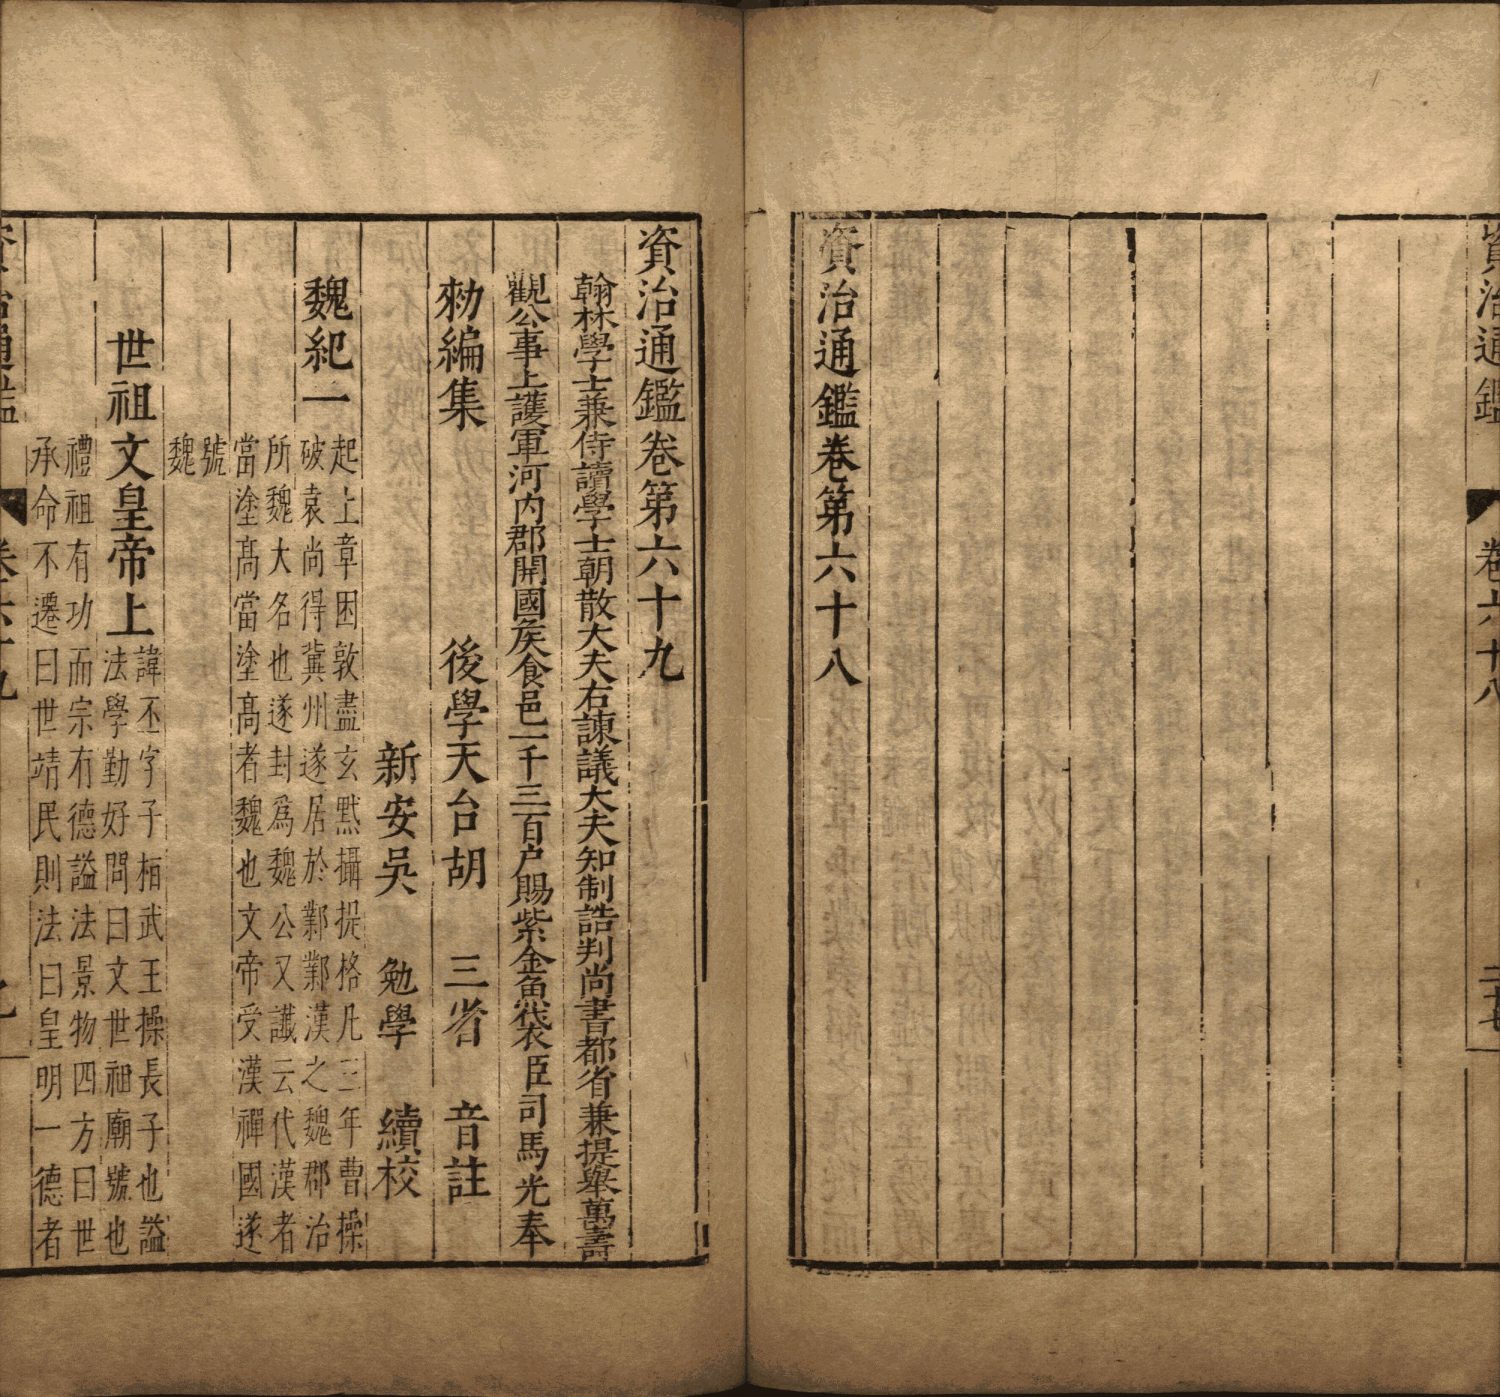 資治通鑑 卷六十八 二十七
資治通鑑卷第六十八
資治通鑑卷第六十九
翰林學士兼侍讀學士朝散大夫右諫議大夫知制誥判尚書都省兼提舉萬壽
觀公事上護軍河内郡開國矦食邑一千三百户賜紫金魚袋臣司馬光奉
勑編集 後學天台胡 三省 音註
新安吳 勉學 續校
魏紀一
起上章困敦盡玄黓攝提格凡三年曹操
破袁尚得冀州遂居於鄴鄴漢之魏郡治
所魏大名也遂封爲魏公又讖云代漢者
當塗髙當塗髙者魏也文帝受漢禪國遂
號
魏
世祖文皇帝上
諱丕字子桓武王操長子也諡
法學勤好問曰文世祖廟號也
禮祖有功而宗有德諡法景物四方曰世
承命不遷曰世靖民則法曰皇明一德者
資治通鑑 卷六十九